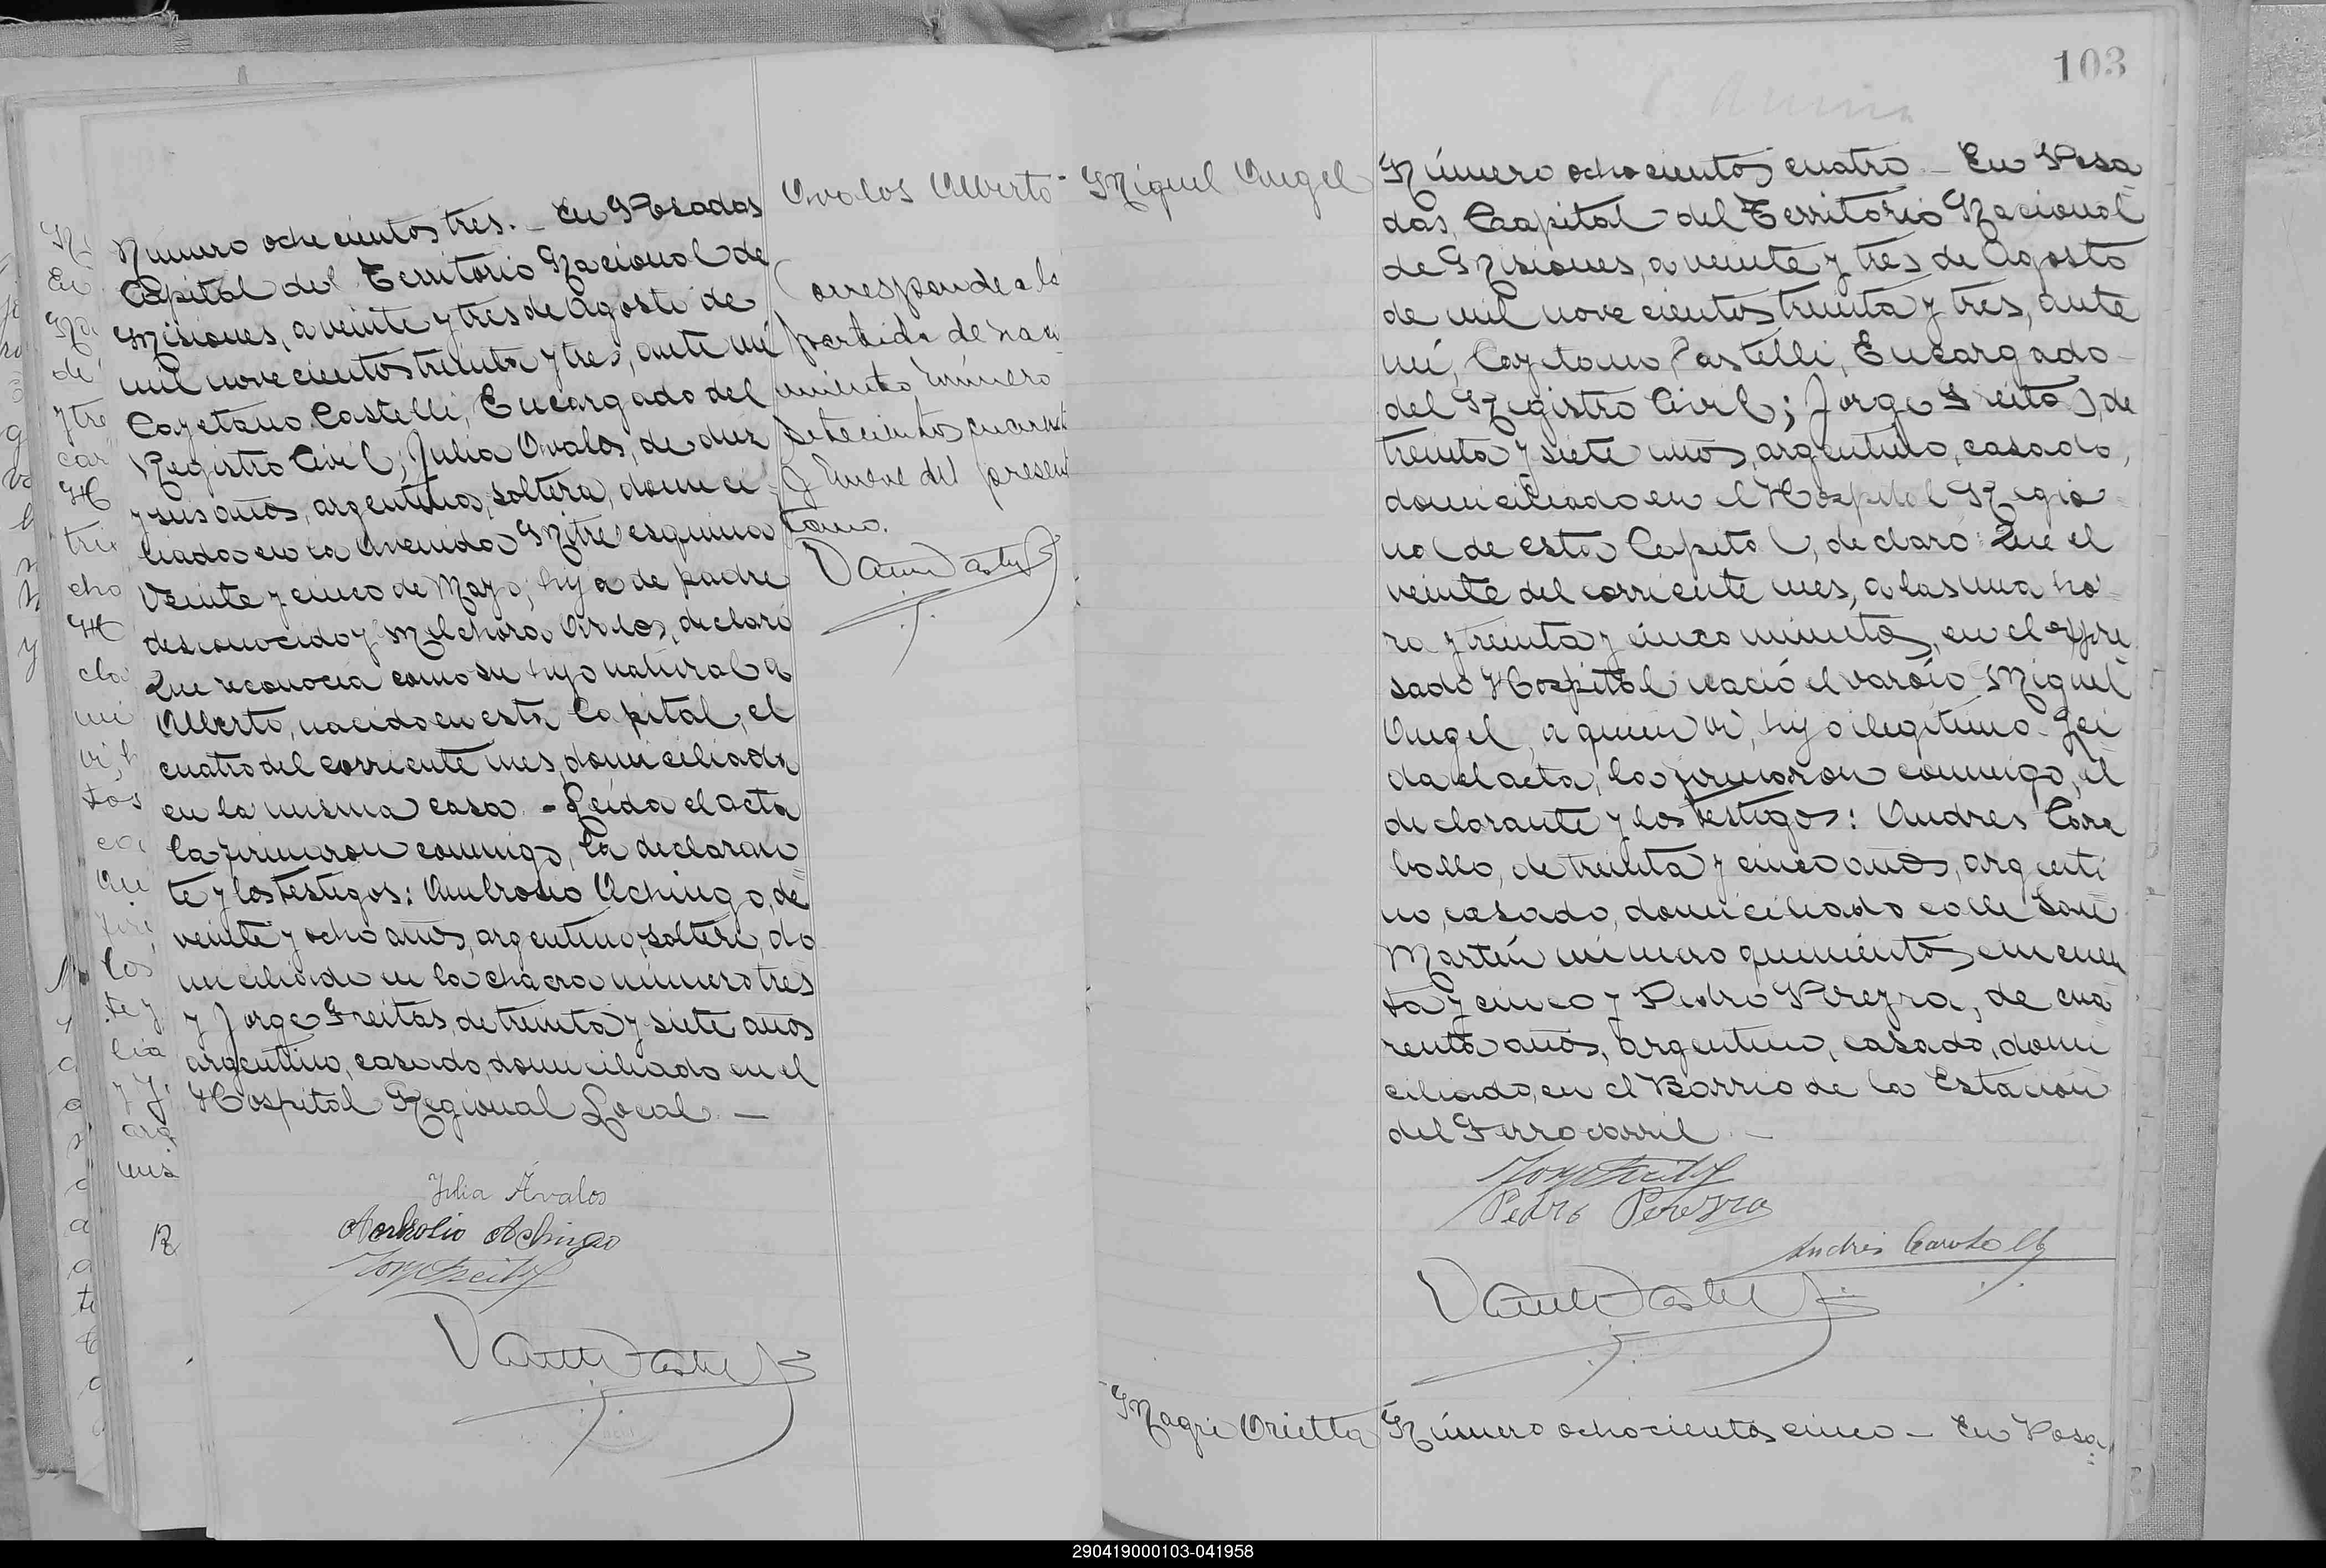 Número ochocientos tres. - En Posadas
Capital del Territorio Nacional de
Misiones, a veinte y tres de Agosto de
mil novecientos treinta y tres, ante mi
Cayetano Castelli, Encargado del
Registro Civil; Julia Avalos, de diez
y seis años, argentina, soltera, domici
liada en la Avenida Mitre esquina
Veinte y cinco de Mayo; hija de padre
desconocido y Melchora Avalos, declaró
Que reconocía como su hijo natural a
Alberto, nacido en esta Capital, el
cuatro del corriente mes, domiciliado
en la misma casa. - Leída el acta
la firmaron conmigo, la declaran
te y los testigos: Ambrosio Achingo, de
veinte y ocho años, argentino, soltero, do
miciliado en la chacra número tres
y Jorge Freitas, de treinta y siete años
argentino, casado, domiciliado en el
Hospital Regional Local. -
Julia Ávalos
Ambrosio Achingo
Avalos Alberto
Corresponde a la
partida de naci
miento número
setecientos cuarenta
y nueve del presente
tomo.
103
Miguel Angel
Número ochocientos cuatro. - En Posa
das, Capital del Territorio Nacional
de Misiones, a veinte y tres de Agosto
de mil novecientos treinta y tres, ante
mí, Cayetano Castelli, Encargado
del Registro Civil; Jorge Freitas, de
treinta y siete años, argentino, casado,
domiciliado en el Hospital Regio
nal de esta Capital, declaró: Que el
veinte del corriente mes, a las una ho
ra y treinta y cinco minutos, en el expre
sado Hospital nació el varón Miguel
Angel, a quien vi, hijo ilegítimo. Leí
da el acta, la firmaron conmigo, el
declarante y los testigos: Andres Cara
ballo, de treinta y cinco años, argenti
no, casado, domiciliado calle San
Martín número quinientos cincuen
ta y cinco y Pedro Pereyra, de cua
renta años, argentino, casado, domi
ciliado, en el Barrio de la Estación
del Ferrocarril. -
Pedro Pereyra
Andrés Caraballo
Magri Orietta
Número ochocientos cinco - En Posa
290419000103-041958